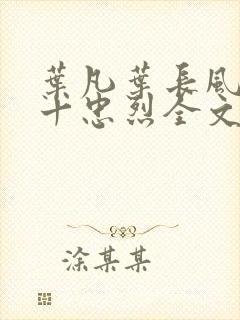 葉凡葉長風
十忠烈全文
涂某某